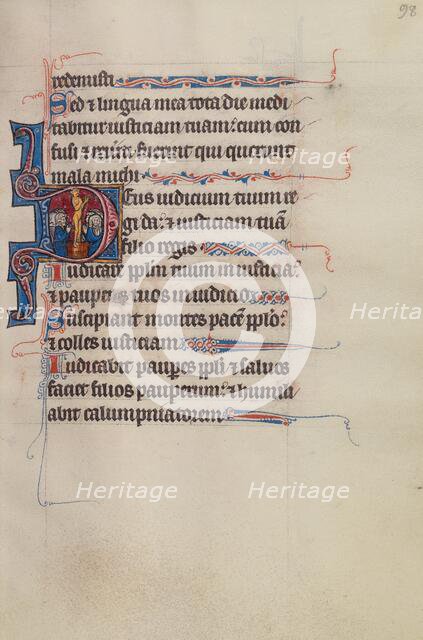 98
redemisti
Sed & lingua mea tota die medi
tabitur iusticiam tuam: cum con
fusi &
fuerint qui querunt
mala michi
Deus iudicium tuum re
gi da: & iusticiam tuā
filio regis
Iudicare pplm tuum in iusticia:
& pauperes tuos in iudicio
Suscipiant montes pacē pplo:
& colles iusticiam
Iudicabit paupes ppli & saluos
faciet filios pauperum: & humili
abit calumpniatorem
Heritage Heritage
Heritage Heritage
Heritage Heritage